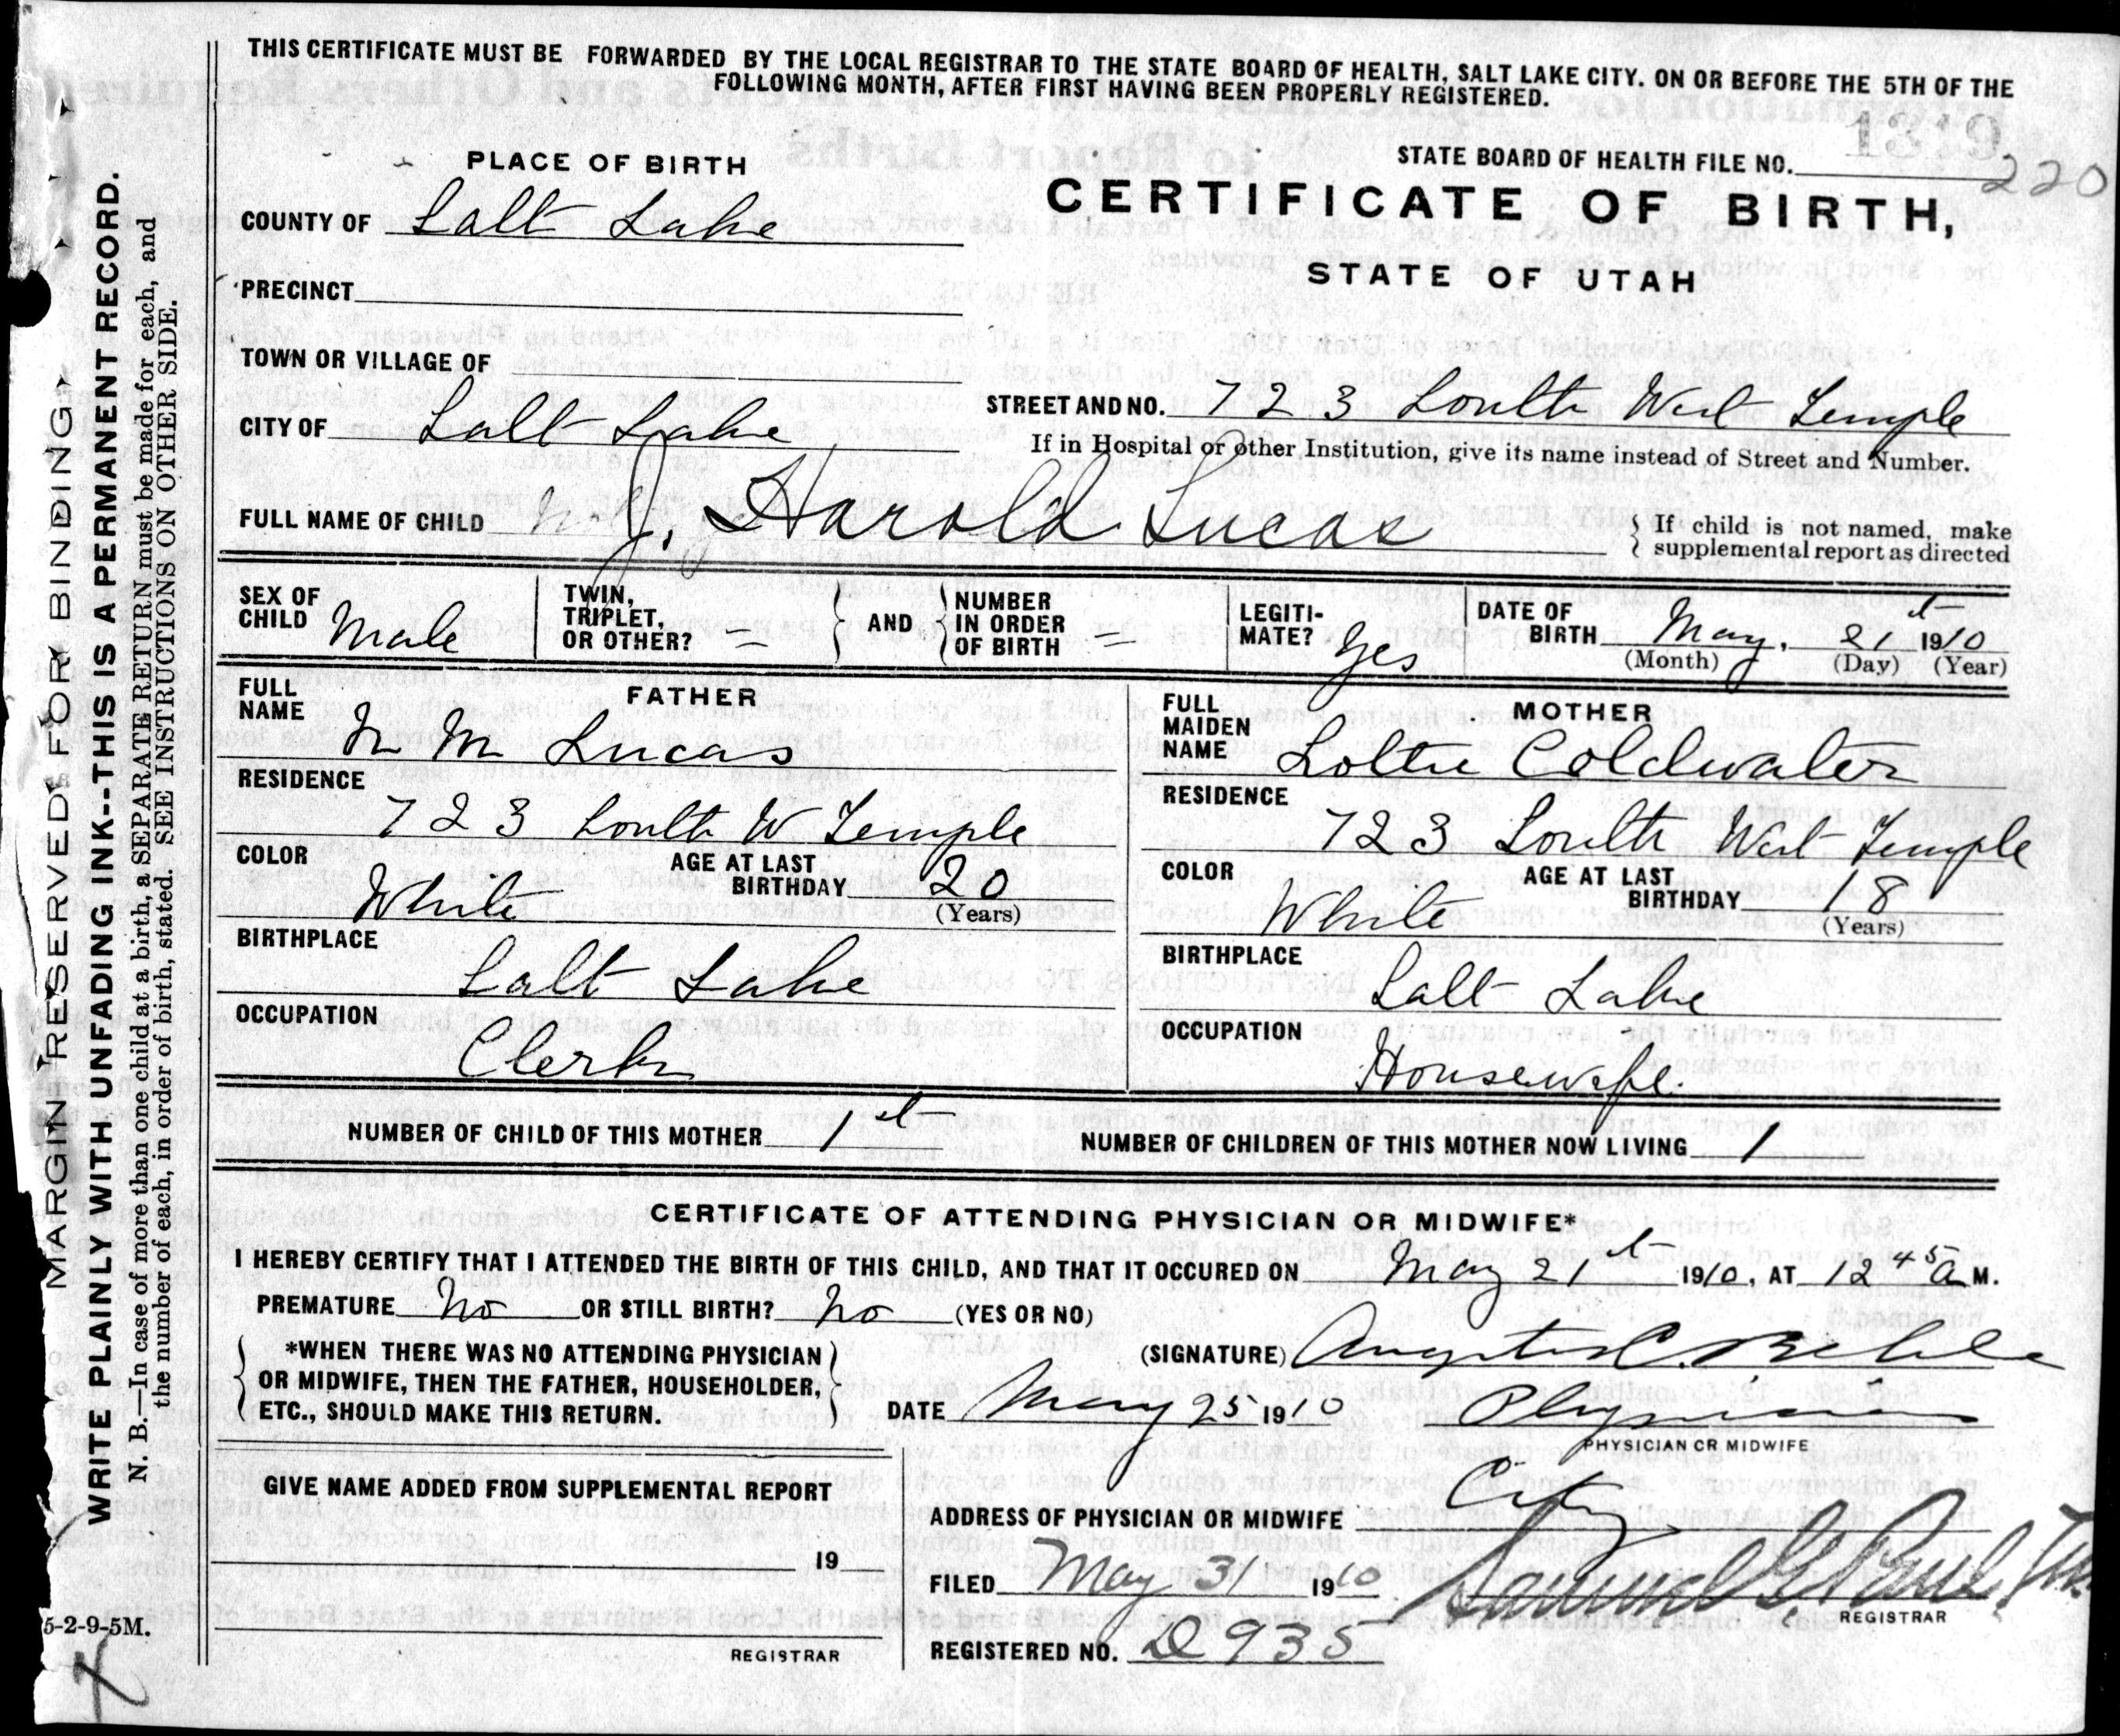 THIS CERTIFICATE MUST BE FORWARDED BY THE LOCAL REGISTRAR TO THE STATE BOARD OF HEALTH, SALT LAKE CITY. ON OR BEFORE THE 5TH OF THE
FOLLOWING MONTH, AFTER FIRST HAVING BEEN PROPERLY REGISTERED.
PLACE OF BIRTH
STATE BOARD OF HEALTH FILE NO.
220
COUNTY OF Salt Lake
CERTIFICATE OF BIRTH,
STATE OF UTAH
PRECINCT
TOWN OR VILLAGE OF
CITY OF Salt Lake
STREET AND NO. 723 South West Temple
If in Hospital or other Institution, give its name instead of Street and Number.
FULL NAME OF CHILD J. Harold Lucas
{ If child is not named, make
supplemental report as directed
SEX OF CHILD Male
TWIN, TRIPLET, OR OTHER? =
AND
NUMBER IN ORDER OF BIRTH =
LEGITI-MATE? Yes
DATE OF BIRTH May, 21st 1910
(Month) (Day) (Year)
FATHER
FULL NAME M Lucas
RESIDENCE
723 South W Temple
COLOR White
AGE AT LAST BIRTHDAY 20
(Years)
BIRTHPLACE
Salt Lake
OCCUPATION
Clerk
MOTHER
FULL MAIDEN NAME Lottie Coldwater
RESIDENCE
723 South West Temple
COLOR White
AGE AT LAST BIRTHDAY 18
(Years)
BIRTHPLACE
Salt Lake
OCCUPATION
Housewife.
NUMBER OF CHILD OF THIS MOTHER 1st
NUMBER OF CHILDREN OF THIS MOTHER NOW LIVING 1
CERTIFICATE OF ATTENDING PHYSICIAN OR MIDWIFE*
I HEREBY CERTIFY THAT I ATTENDED THE BIRTH OF THIS CHILD, AND THAT IT OCCURED ON May 21st 1910, AT 12 45 a M.
PREMATURE No OR STILL BIRTH? No (YES OR NO)
*WHEN THERE WAS NO ATTENDING PHYSICIAN
OR MIDWIFE, THEN THE FATHER, HOUSEHOLDER,
ETC., SHOULD MAKE THIS RETURN.
(SIGNATURE) Augustus C. Behle
DATE May 25 1910
Physician
PHYSICIAN OR MIDWIFE
GIVE NAME ADDED FROM SUPPLEMENTAL REPORT
19
REGISTRAR
ADDRESS OF PHYSICIAN OR MIDWIFE City
FILED May 31 1910 Samuel G. Paul
REGISTRAR
REGISTERED NO. D 935
MARGIN RESERVED FOR BINDING
WRITE PLAINLY WITH UNFADING INK--THIS IS A PERMANENT RECORD.
N. B.—In case of more than one child at a birth, a SEPARATE RETURN must be made for each, and
the number of each, in order of birth, stated. SEE INSTRUCTIONS ON OTHER SIDE.
5-2-9-5M.